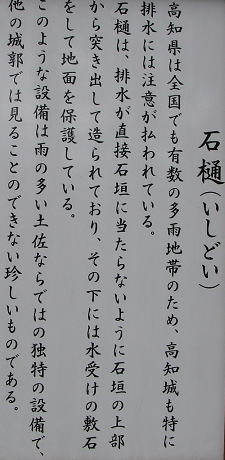 石樋（いしどい）
高知県は全国でも有数の多雨地帯のため、高知城も特に
排水には注意が払われている。
石樋は、排水が直接石垣に当たらないように石垣の上部
から突き出して造られており、その下には水受けの敷石
をして地面を保護している。
このような設備は雨の多い土佐ならではの独特の設備で、
他の城郭では見ることのできない珍しいものである。